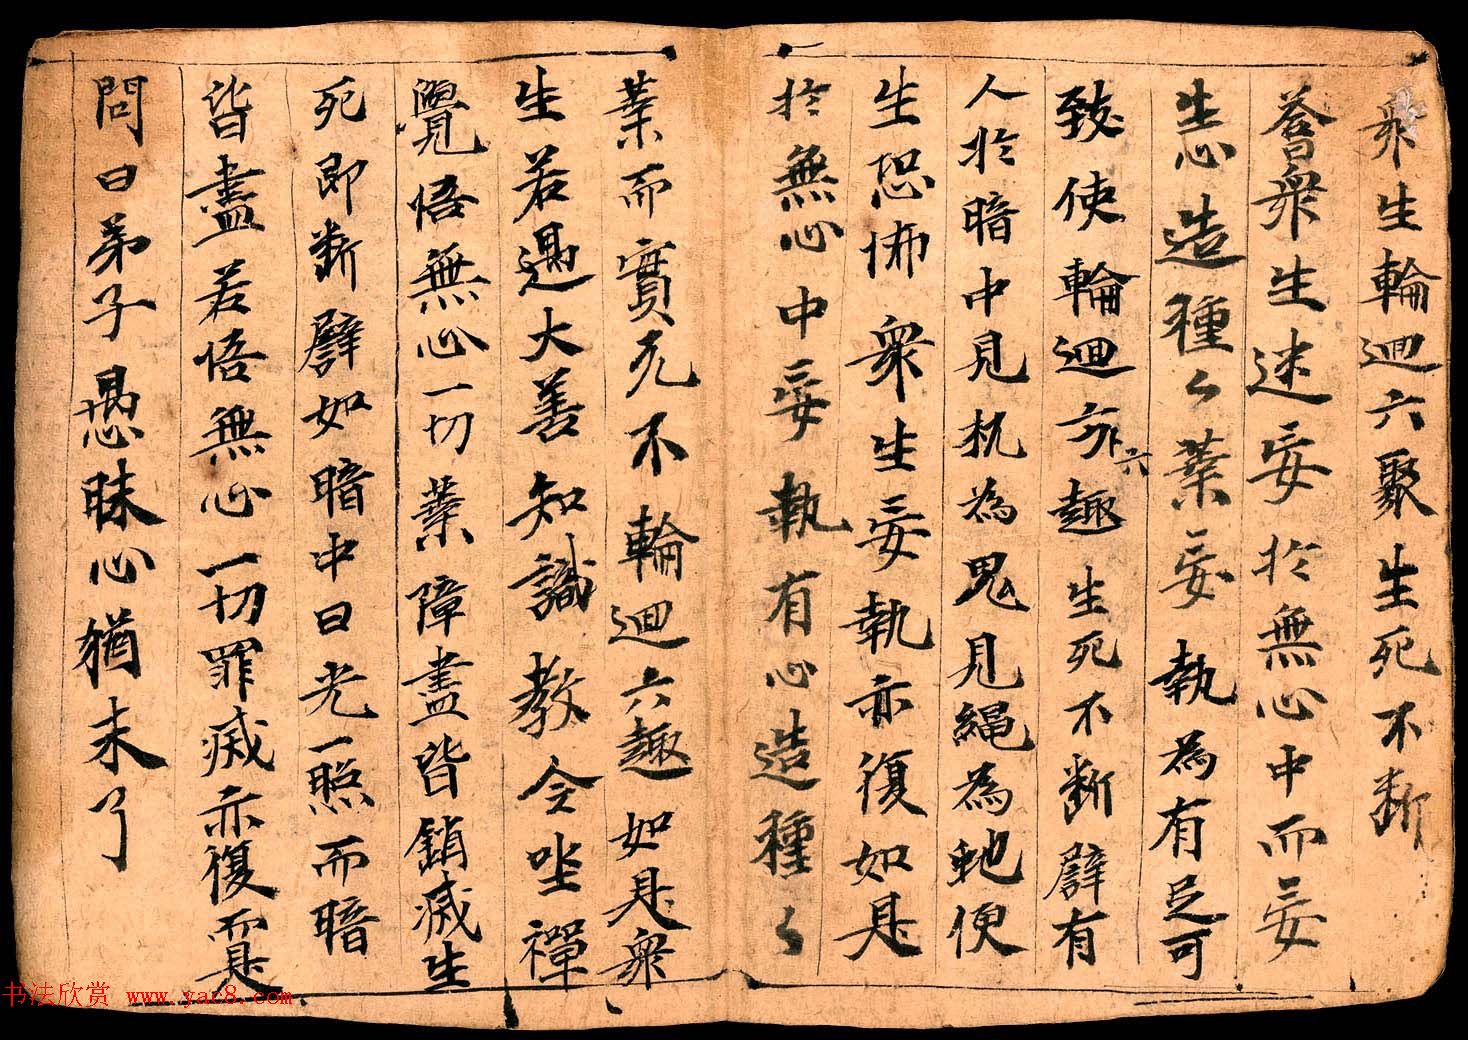 衆生輪迴六聚生死不斷
荅衆生迷妄於無心中而妄
生心造種々業妄執為有足可
致使輪迴六趣生死不斷譬有
人於暗中見杌為鬼見繩為虵便
生恐怖衆生妄執亦復如是
於無心中妄執有心造種々
業而實无不輪迴六趣如是衆
生若遇大善知識教令坐禪
覺悟無心一切業障盡皆銷滅生
死即斷譬如暗中日光一照而暗
皆盡若悟無心一切罪滅亦復而是
問曰弟子愚昧心猶未了
书法欣赏 www.yac8.com